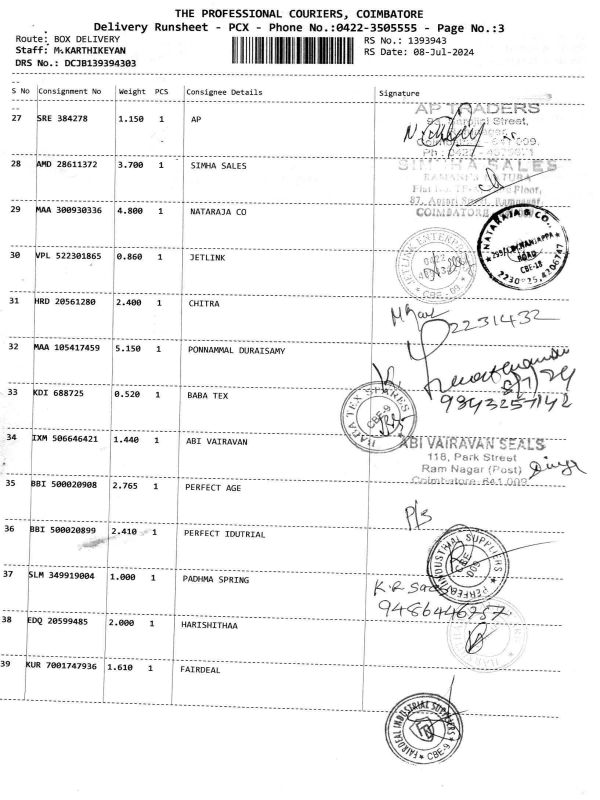 THE PROFESSIONAL COURIERS, COIMBATORE
Delivery Runsheet - PCX - Phone No.:0422-3505555 - Page No.:3
Route: BOX DELIVERY RS No.: 1393943
Staff: M.KARTHIKEYAN RS Date: 08-Jul-2024
DRS No.: DCJB139394303
S No Consignment No Weight PCS Consignee Details Signature
27 SRE 384278 1.150 1 AP
AP TRADERS
28 AMD 28611372 3.700 1 SIMHA SALES
SIMHA SALES
Floor,
COIMBATORE
29 MAA 300930336 4.800 1 NATARAJA CO
NATARAJA & CO.,
ROAD
CBE-18
30 VPL 522301865 0.860 1 JETLINK
0422
CBE-09
31 HRD 20561280 2.400 1 CHITRA
2231432
32 MAA 105417459 5.150 1 PONNAMMAL DURAISAMY
8/7/24
9843257142
33 KDI 688725 0.520 1 BABA TEX
CBE-9
34 IXM 506646421 1.440 1 ABI VAIRAVAN
ABI VAIRAVAN SEALS
118, Park Street
Ram Nagar (Post)
Coimbatore 641 009
35 BBI 500020908 2.765 1 PERFECT AGE
P/s
36 BBI 500020899 2.410 1 PERFECT IDUTRIAL
PERFECT INDUSTRIAL SUPPLIERS
37 SLM 349919004 1.000 1 PADHMA SPRING
K.R
9486446757
38 EDQ 20599485 2.000 1 HARISHITHAA
39 KUR 7001747936 1.610 1 FAIRDEAL
FAIRDEAL INDUSTRIAL SUPPLIERS
CBE-9